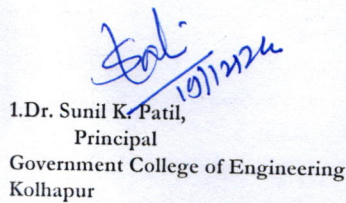 19/12/24
1.Dr. Sunil K. Patil,
Principal
Government College of Engineering
Kolhapur